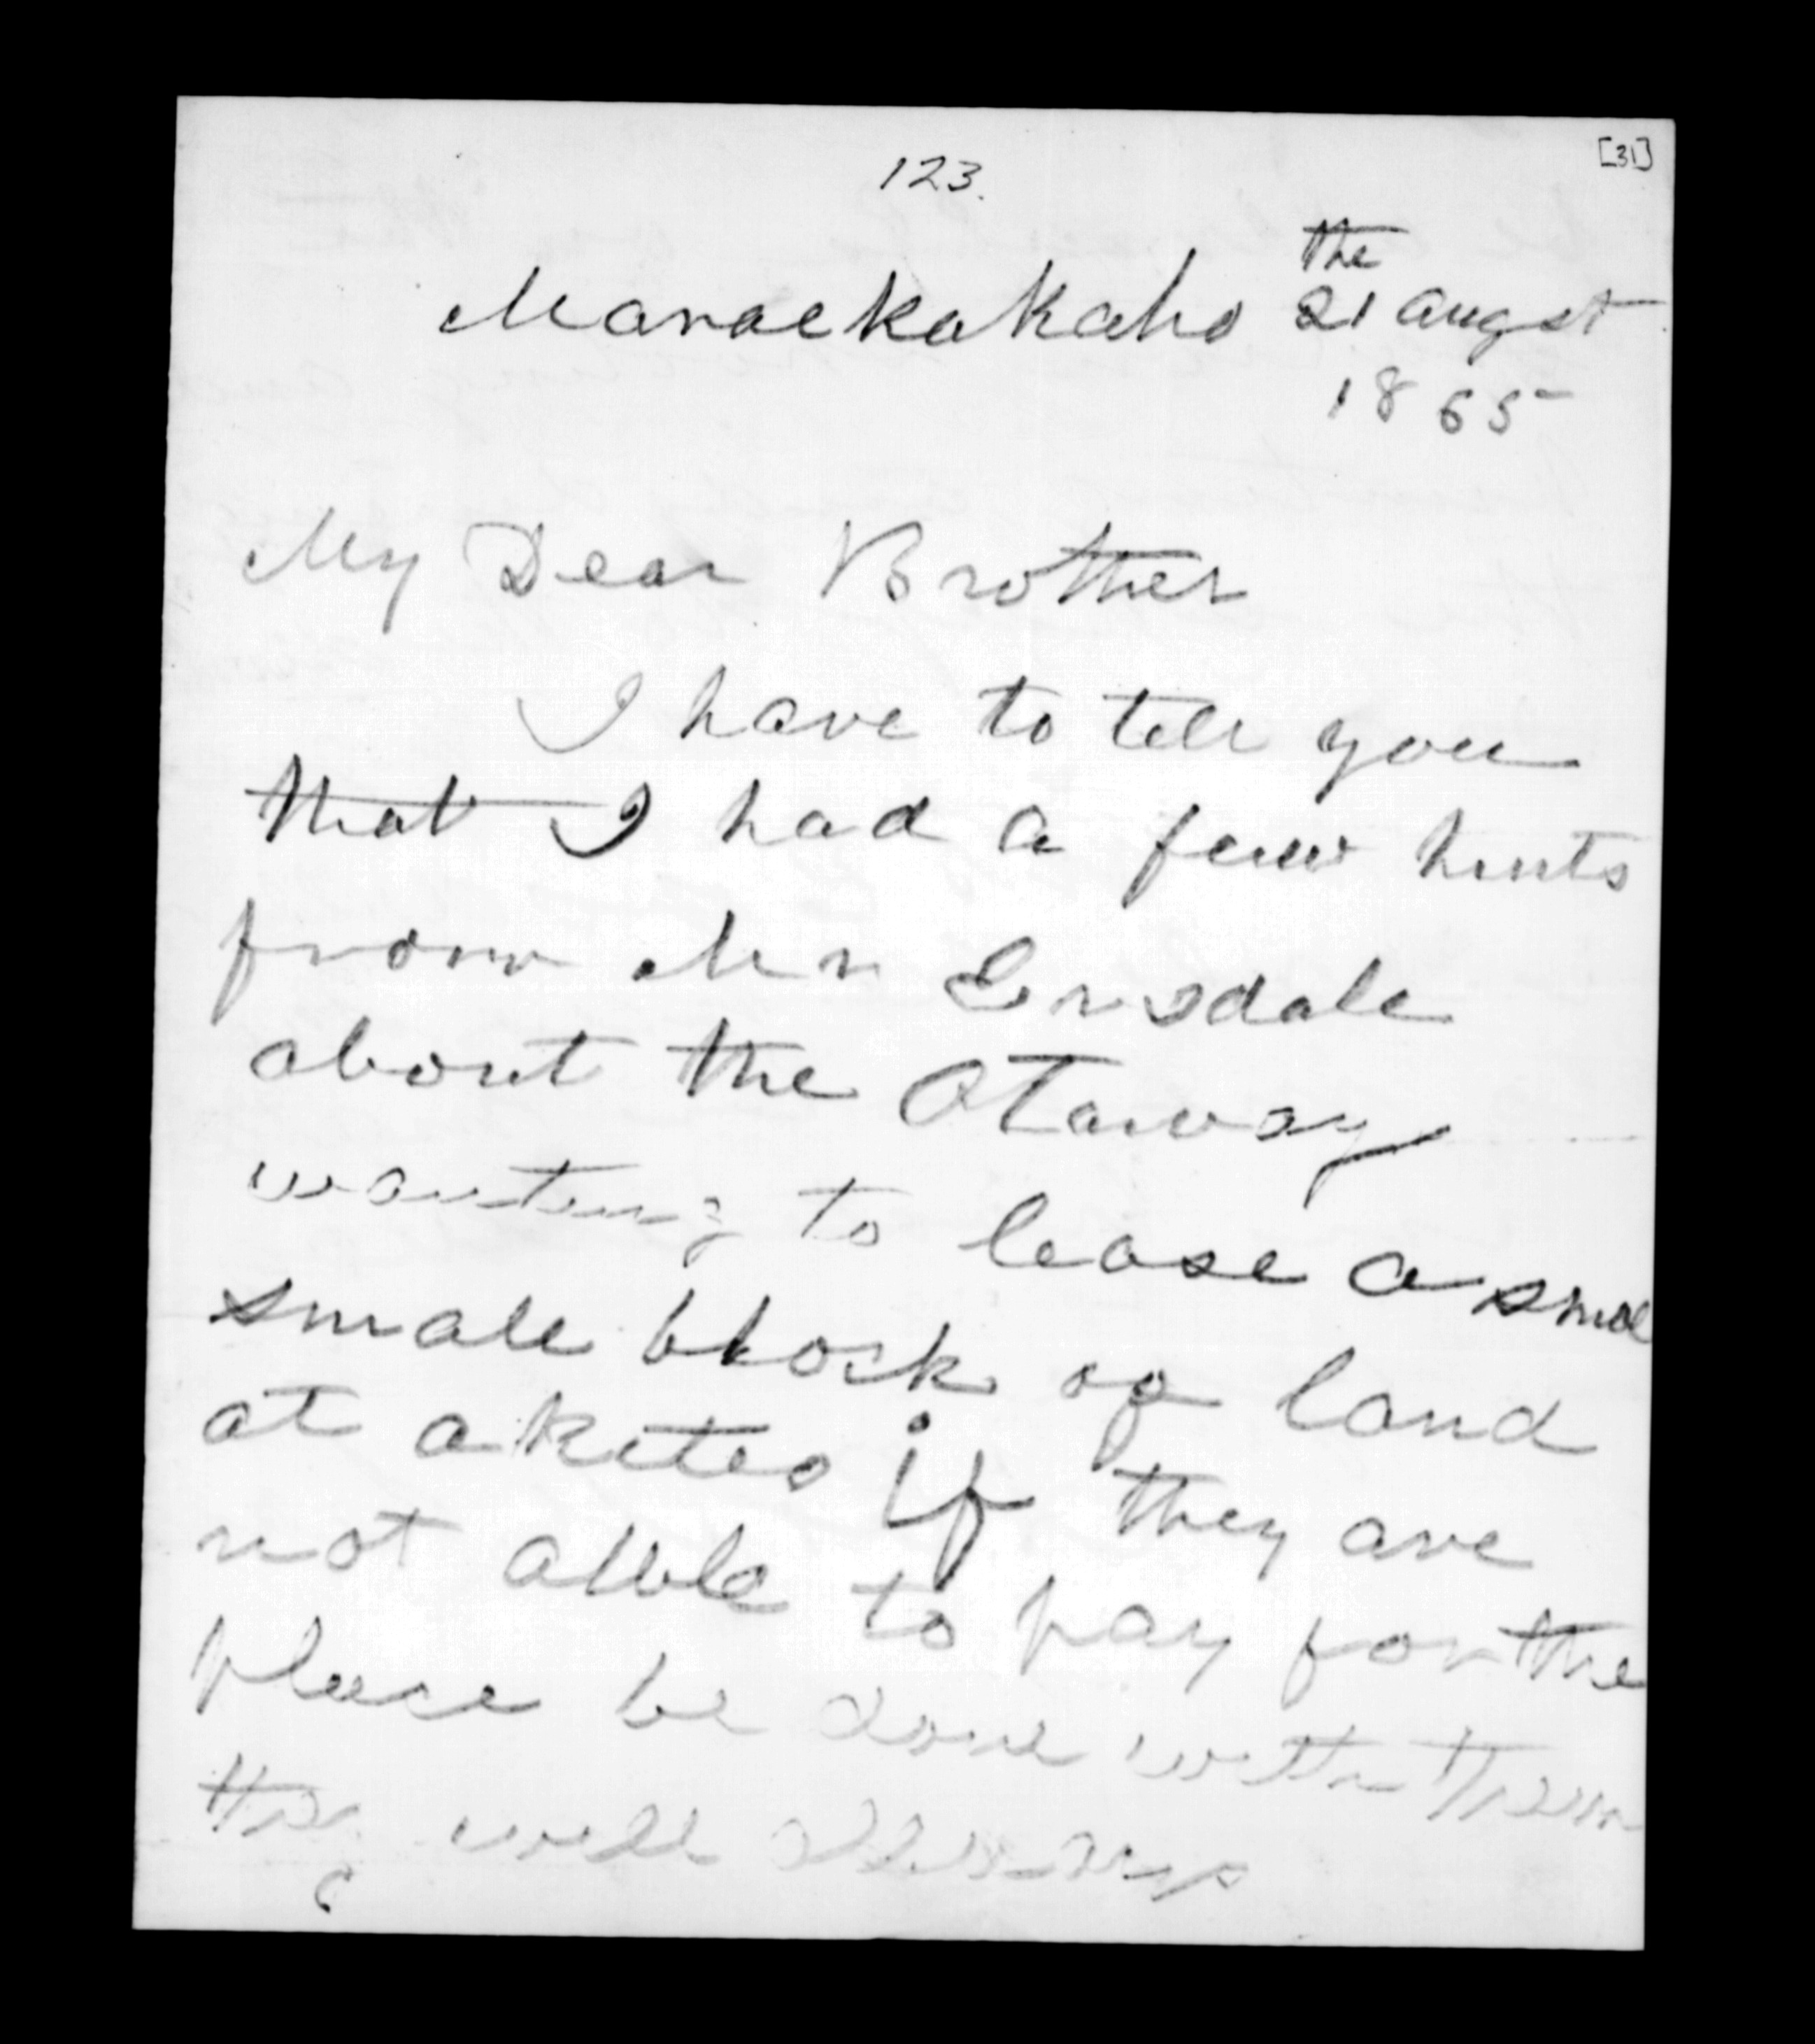 [31]
123.
Maraekakaho the
21 augst
1865
My Dear Brother
I have to tell you
that I had a few hints
from Mr Ensdale
about the Otaway
wanting to lease a smal
small block of land
at akiteo if they are
not allble to pay for the
place be done with them
they will allways